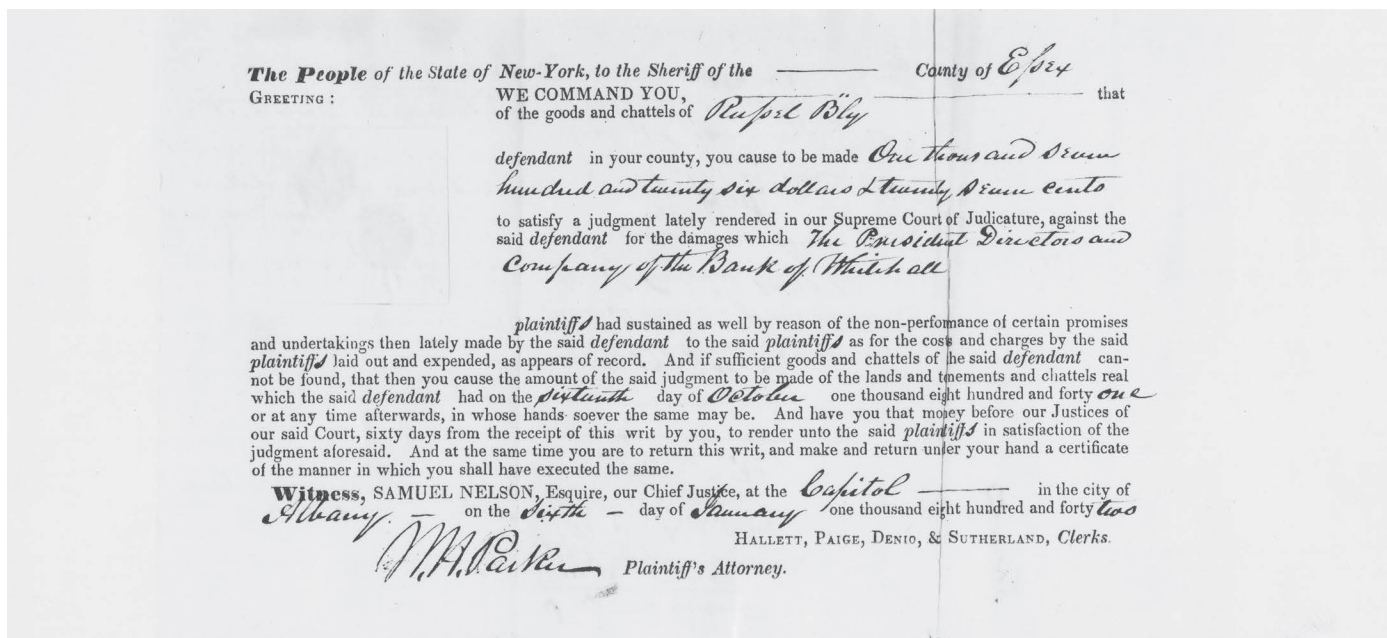 The People of the State of New-York, to the Sheriff of the County of Essex
GREETING : WE COMMAND YOU, that
of the goods and chattels of Russel Bly
defendant in your county, you cause to be made One thousand Seven
hundred and twenty six dollars & twenty seven cents
to satisfy a judgment lately rendered in our Supreme Court of Judicature, against the
said defendant for the damages which The President Directors and
Company of the Bank of Whitehall
plaintiffs had sustained as well by reason of the non-performance of certain promises
and undertakings then lately made by the said defendant to the said plaintiffs as for the costs and charges by the said
plaintiffs laid out and expended, as appears of record. And if sufficient goods and chattels of the said defendant can-
not be found, that then you cause the amount of the said judgment to be made of the lands and tenements and chattels real
which the said defendant had on the sixteenth day of October one thousand eight hundred and forty one
or at any time afterwards, in whose hands soever the same may be. And have you that money before our Justices of
our said Court, sixty days from the receipt of this writ by you, to render unto the said plaintiffs in satisfaction of the
judgment aforesaid. And at the same time you are to return this writ, and make and return under your hand a certificate
of the manner in which you shall have executed the same.
Witness, SAMUEL NELSON, Esquire, our Chief Justice, at the Capitol in the city of
Albany. — on the Sixth — day of January one thousand eight hundred and forty two
HALLETT, PAIGE, DENIO, & SUTHERLAND, Clerks.
W.A. Parker Plaintiff's Attorney.